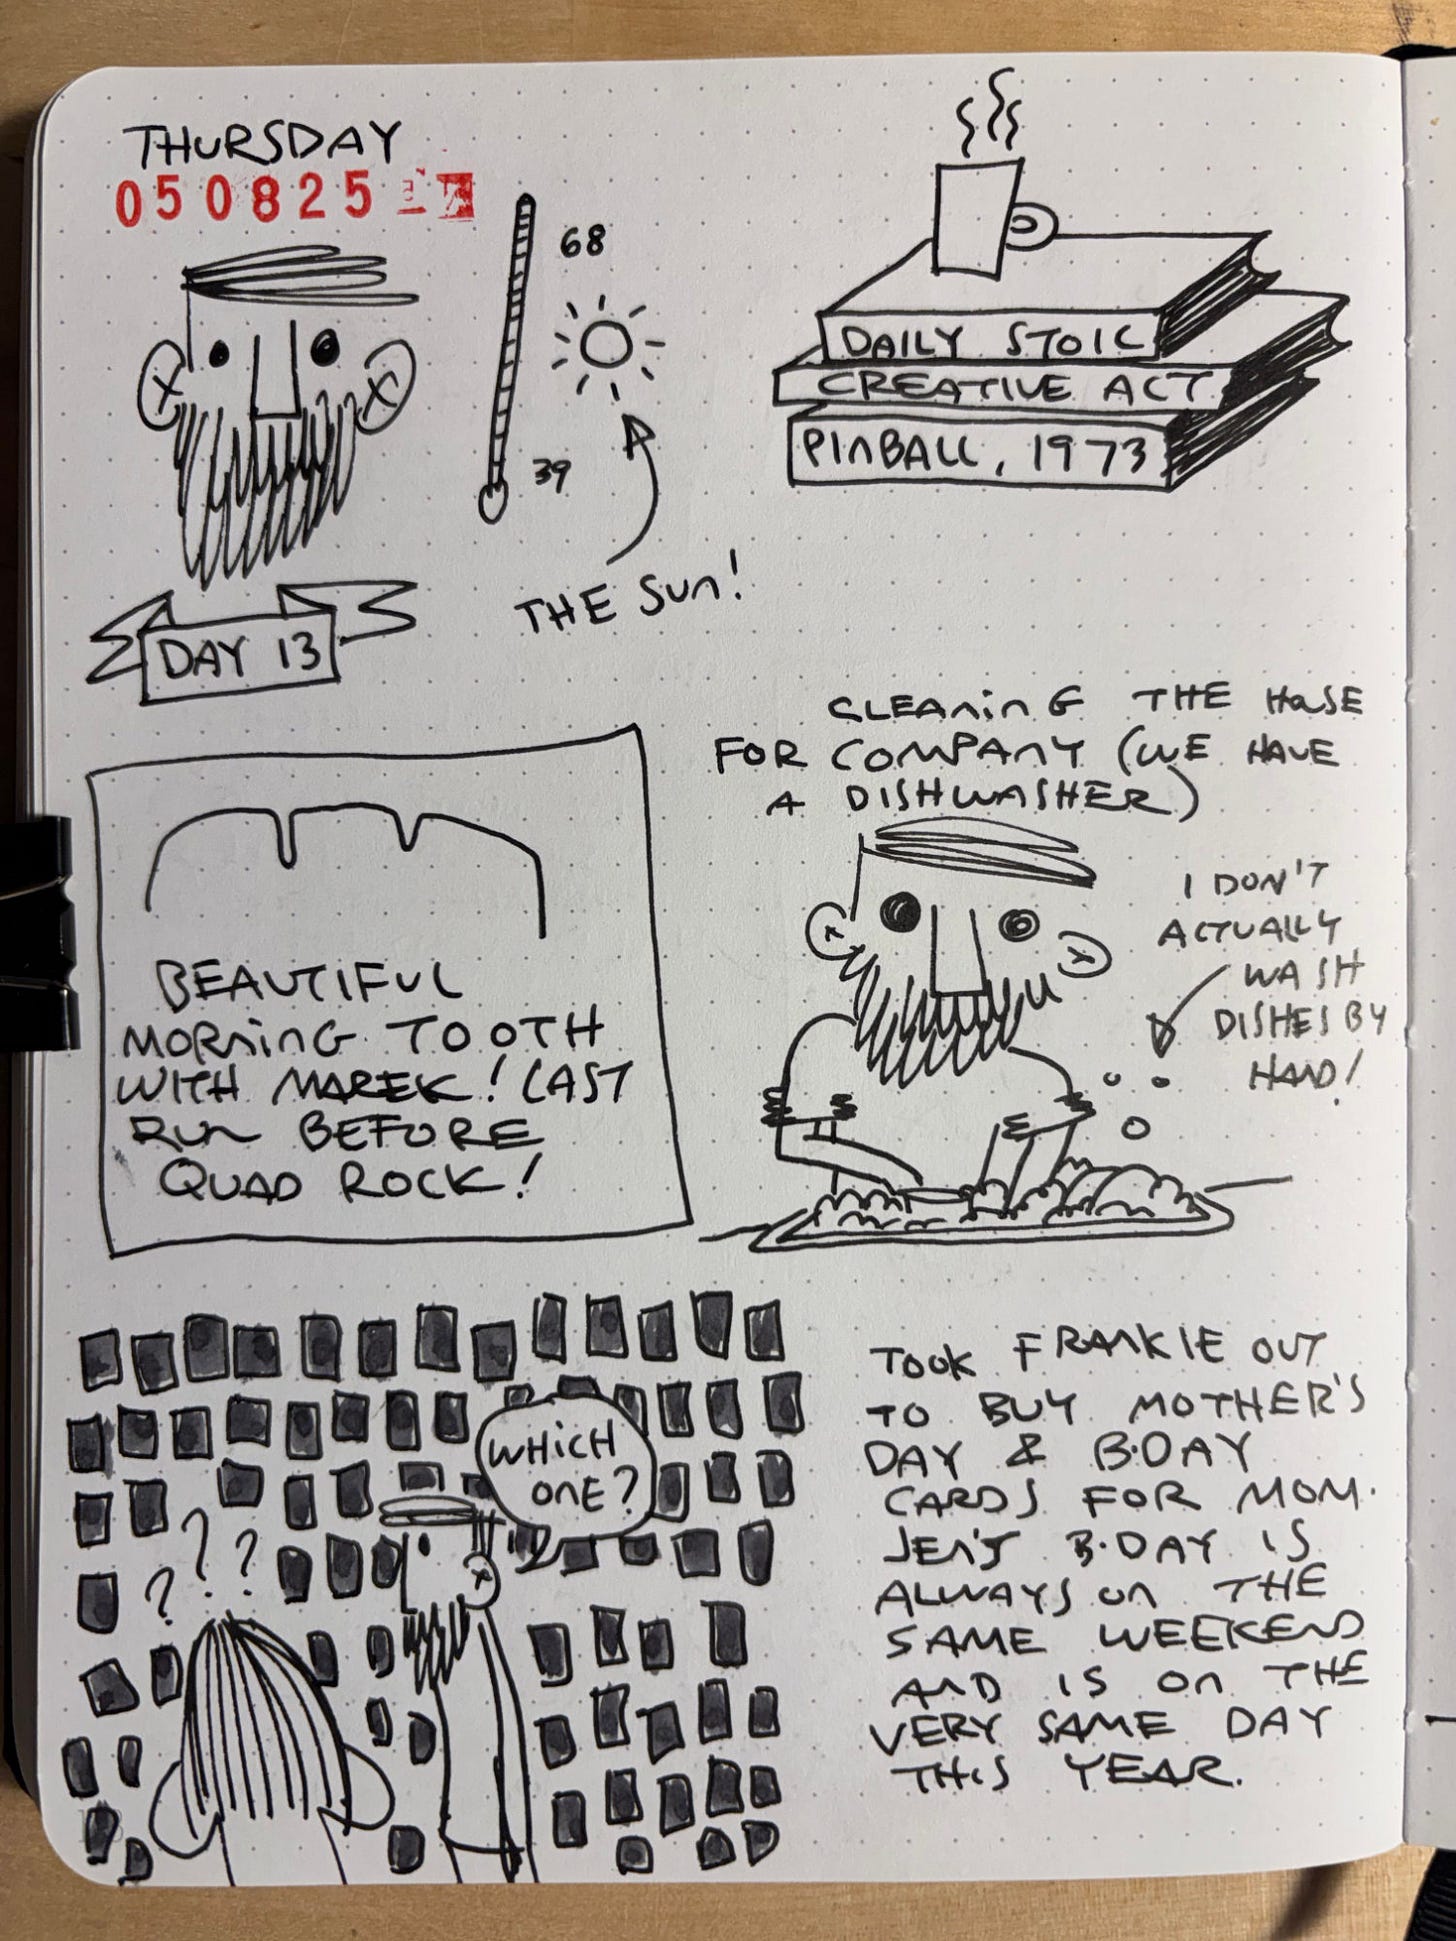 THURSDAY
050825
68
39
THE SUN!
DAY 13
DAILY STOIC
CREATIVE ACT
PINBALL, 1973
CLEANING THE HOUSE
FOR COMPANY (WE HAVE
A DISHWASHER)
I DON'T
ACTUALLY
WASH
DISHES BY
HAND!
BEAUTIFUL
MORNING TOOTH
WITH MAREK! LAST
RUN BEFORE
QUAD ROCK!
WHICH
ONE?
? ? ?
TOOK FRANKIE OUT
TO BUY MOTHER'S
DAY & B·DAY
CARDS FOR MOM.
JEN'S B·DAY IS
ALWAYS ON THE
SAME WEEKEND
AND IS ON THE
VERY SAME DAY
THIS YEAR.